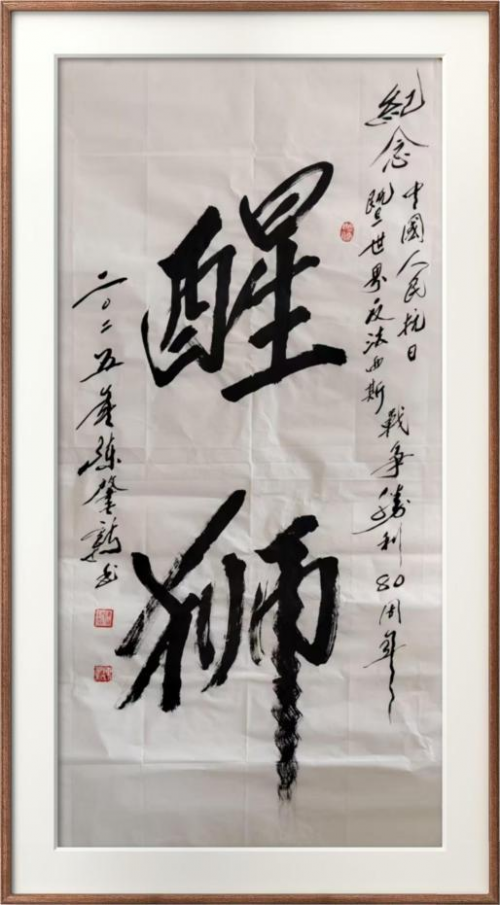 紀念
中國人民抗日
暨世界反法西斯
戰爭勝利80周年
醒獅
二〇二五年
书